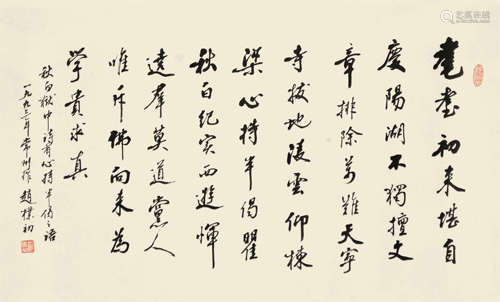 耄耋初来堪自
慶陽湖不獨擅文
章排除萬難天寧
寺拔地凌雲仰棟
梁心持半偈瞿
秋白纪实西遊惲
逵群莫道黨人
唯斥佛向来為
学貴求真
秋白獄中詩有心持半偈之語
一九九三年常州作 趙樸初